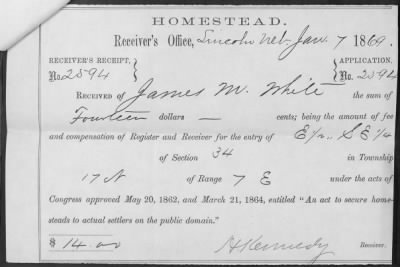 HOMESTEAD.
Receiver's Office, Lincoln Neb. Jan. 7 1869.
RECEIVER'S RECEIPT, APPLICATION,
No. 2594 No. 2594
RECEIVED OF James M. White the sum of
Fourteen dollars — cents; being the amount of fee
and compensation of Register and Receiver for the entry of E/2 SE 1/4
of Section 34 in Township
17 N of Range 7 E under the acts of
Congress approved May 20, 1862, and March 21, 1864, entitled "An act to secure home-
steads to actual settlers on the public domain."
$ 14.00 H Kennedy Receiver.